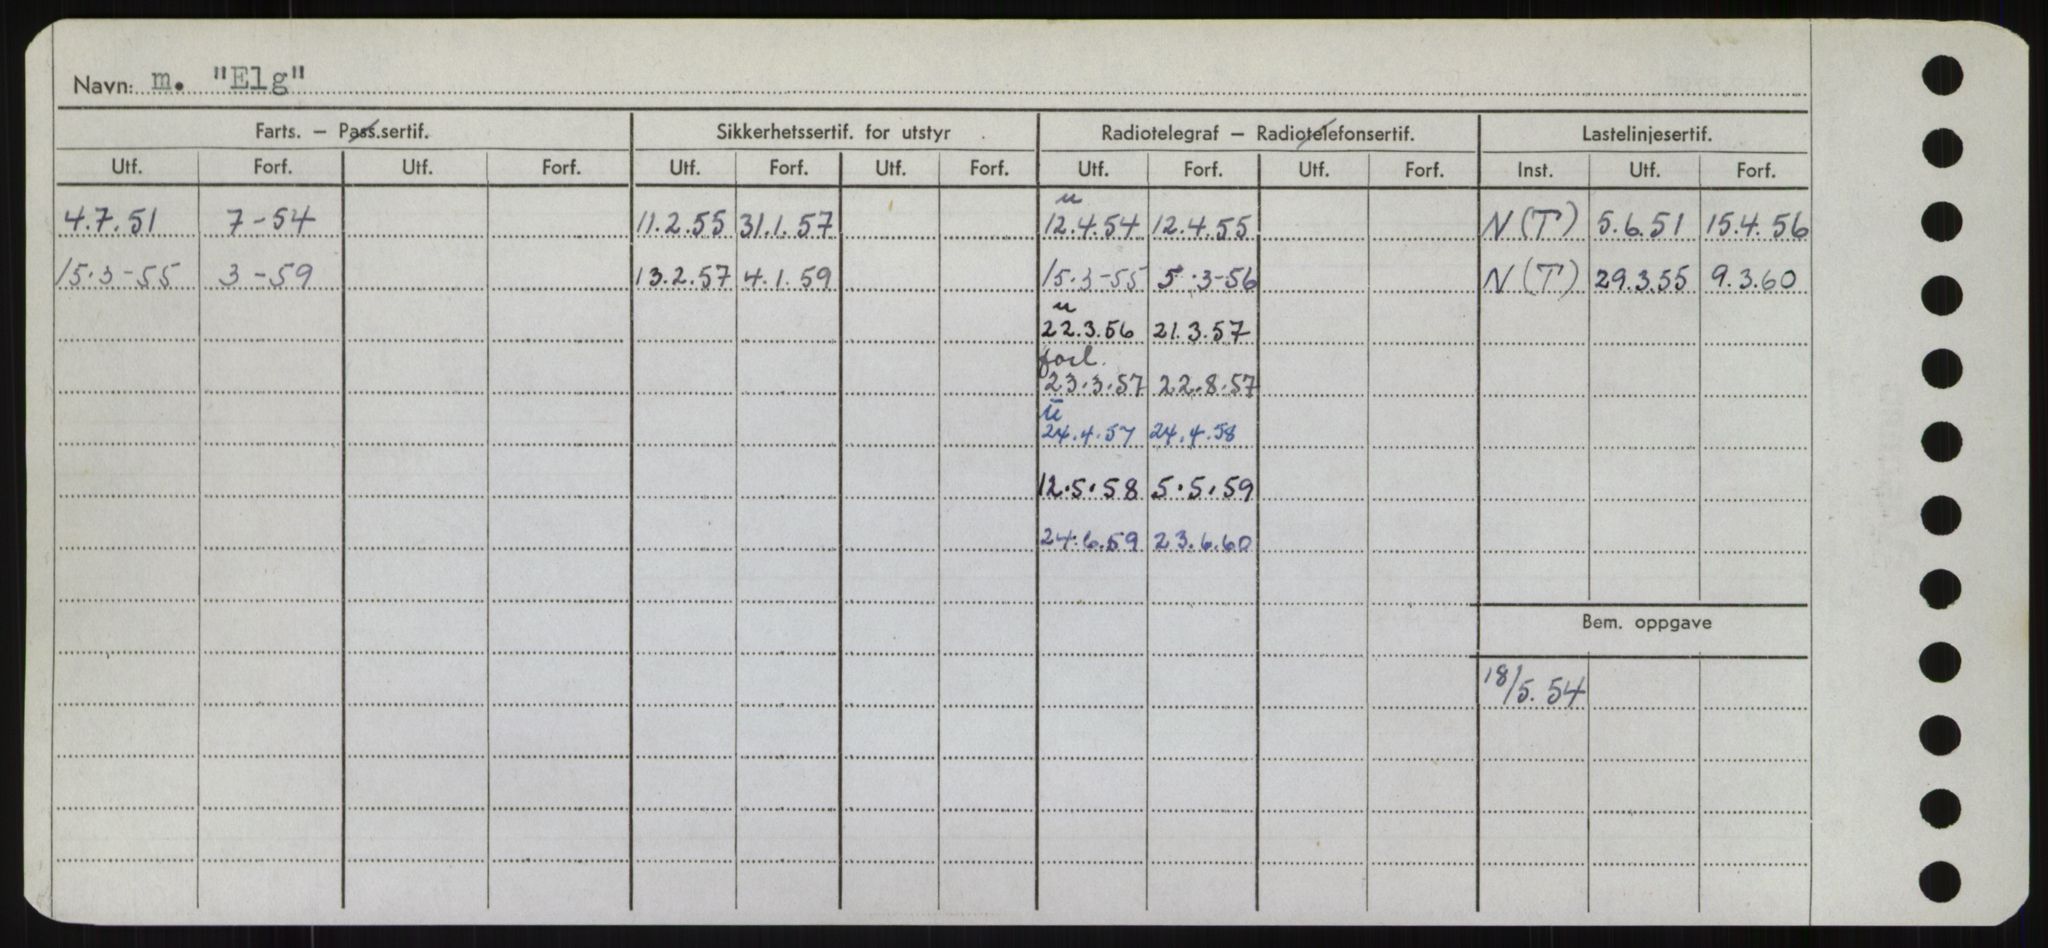 Navn: m. "Elg"
Farts. — Pass.sertif. Sikkerhetssertif. for utstyr Radiotelegraf — Radiotelefonsertif. Lastelinjesertif.
Utf. Forf. Utf. Forf. Utf. Forf. Utf. Forf. Utf. Forf. Utf. Forf. Inst. Utf. Forf.
u
4.7.51 7-54 11.2.55 31.1.57 12.4.54 12.4.55 N(T) 5.6.51 15.4.56
15.3-55 3-59 13.2.57 4.1.59 15.3-55 5.3-56 N(T) 29.3.55 9.3.60
u
22.3.56 21.3.57
forl.
23.3.57 22.8.57
u
24.4.57 24.4.58
12.5.58 5.5.59
24.6.59 23.6.60
Bem. oppgave
18/5.54